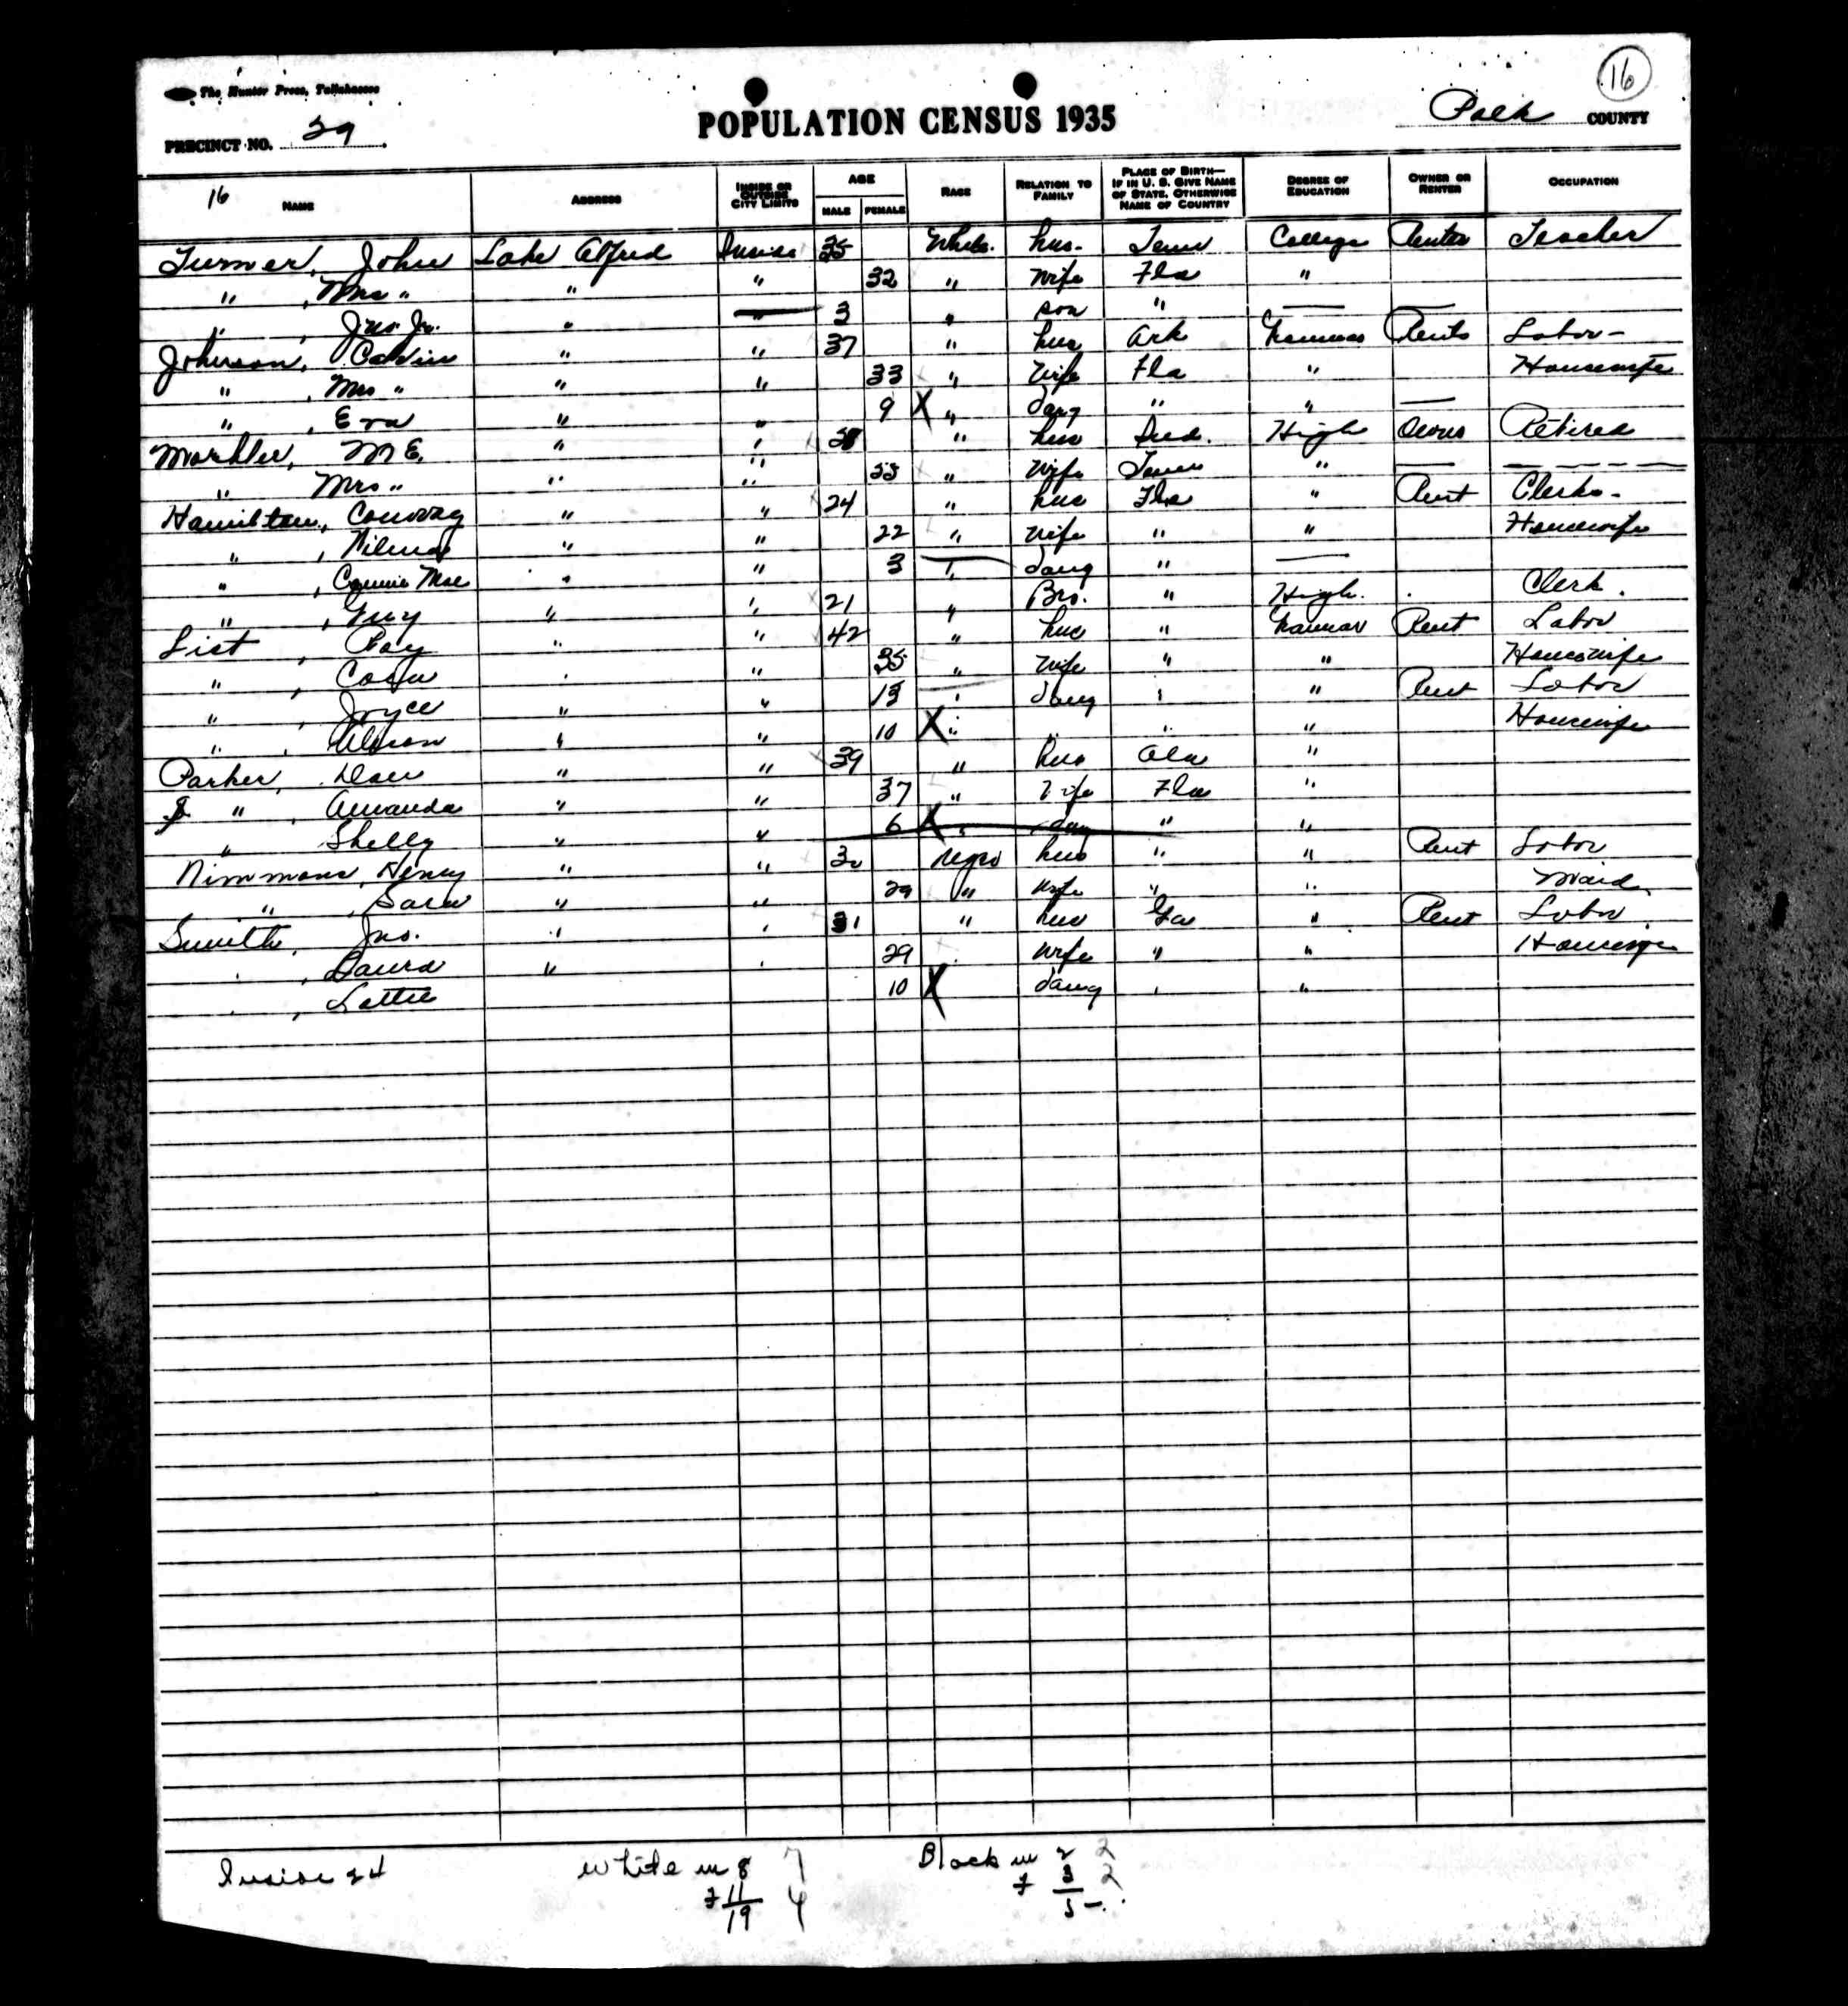 16
The Hunter Press, Tallahassee
PRECINCT NO. 29
POPULATION CENSUS 1935
Polk COUNTY
16
NAME ADDRESS INSIDE OR OUTSIDE CITY LIMITS AGE MALE FEMALE RACE RELATION TO FAMILY PLACE OF BIRTH— IF IN U. S. GIVE NAME OF STATE, OTHERWISE NAME OF COUNTRY DEGREE OF EDUCATION OWNER OR RENTER OCCUPATION
Turner, John Lake Alfred Inside 35 White hus. Tenn College Renter Teacher
" , Mrs " " " 32 " Wife Fla "
" , Jno. Jr. " " 3 " son " —
Johnson, Calvin " " 37 " hus Ark Grammar Rents Labor -
" , Mrs " " " 33 " Wife Fla " Housewife
" , Eva " " 9 X " daug " " —
M.E. " " " hus Ind. High Owns Retired
" Mrs " " " 55 " Wife Tenn " — — — — —
Hamilton, Conway " " 24 " hus Fla " Rent Clerk -
" , Wilma " " 22 " Wife " " Housewife
" , Connie Mae " " 3 " daug " —
" , Guy " " 21 " Bro. " High. Clerk.
List , Ray " " 42 " hus " Grammar Rent Labor
" , " " 35 " Wife " " Housewife
" , Joyce " " 13 " daug " " Rent Labor
" , " " 10 X " " " " Housewife
Parker, Dan " " 39 " hus Ala "
" , Amanda " " 37 " Wife Fla "
" Shelly " " 6 X " daug " "
Nimmons, Henry " " 30 Negro hus " " Rent Labor
" , Sara " " 29 " Wife " " Maid
Smith, Jno. " " 31 " hus Ga " Rent Labor
" , Laura " " 29 Wife " " Housewife
" , Lottie 10 X daug " "
Inside 24 White m 8 7 Black m 2 2
f 11 4 f 3 2
19 5 -